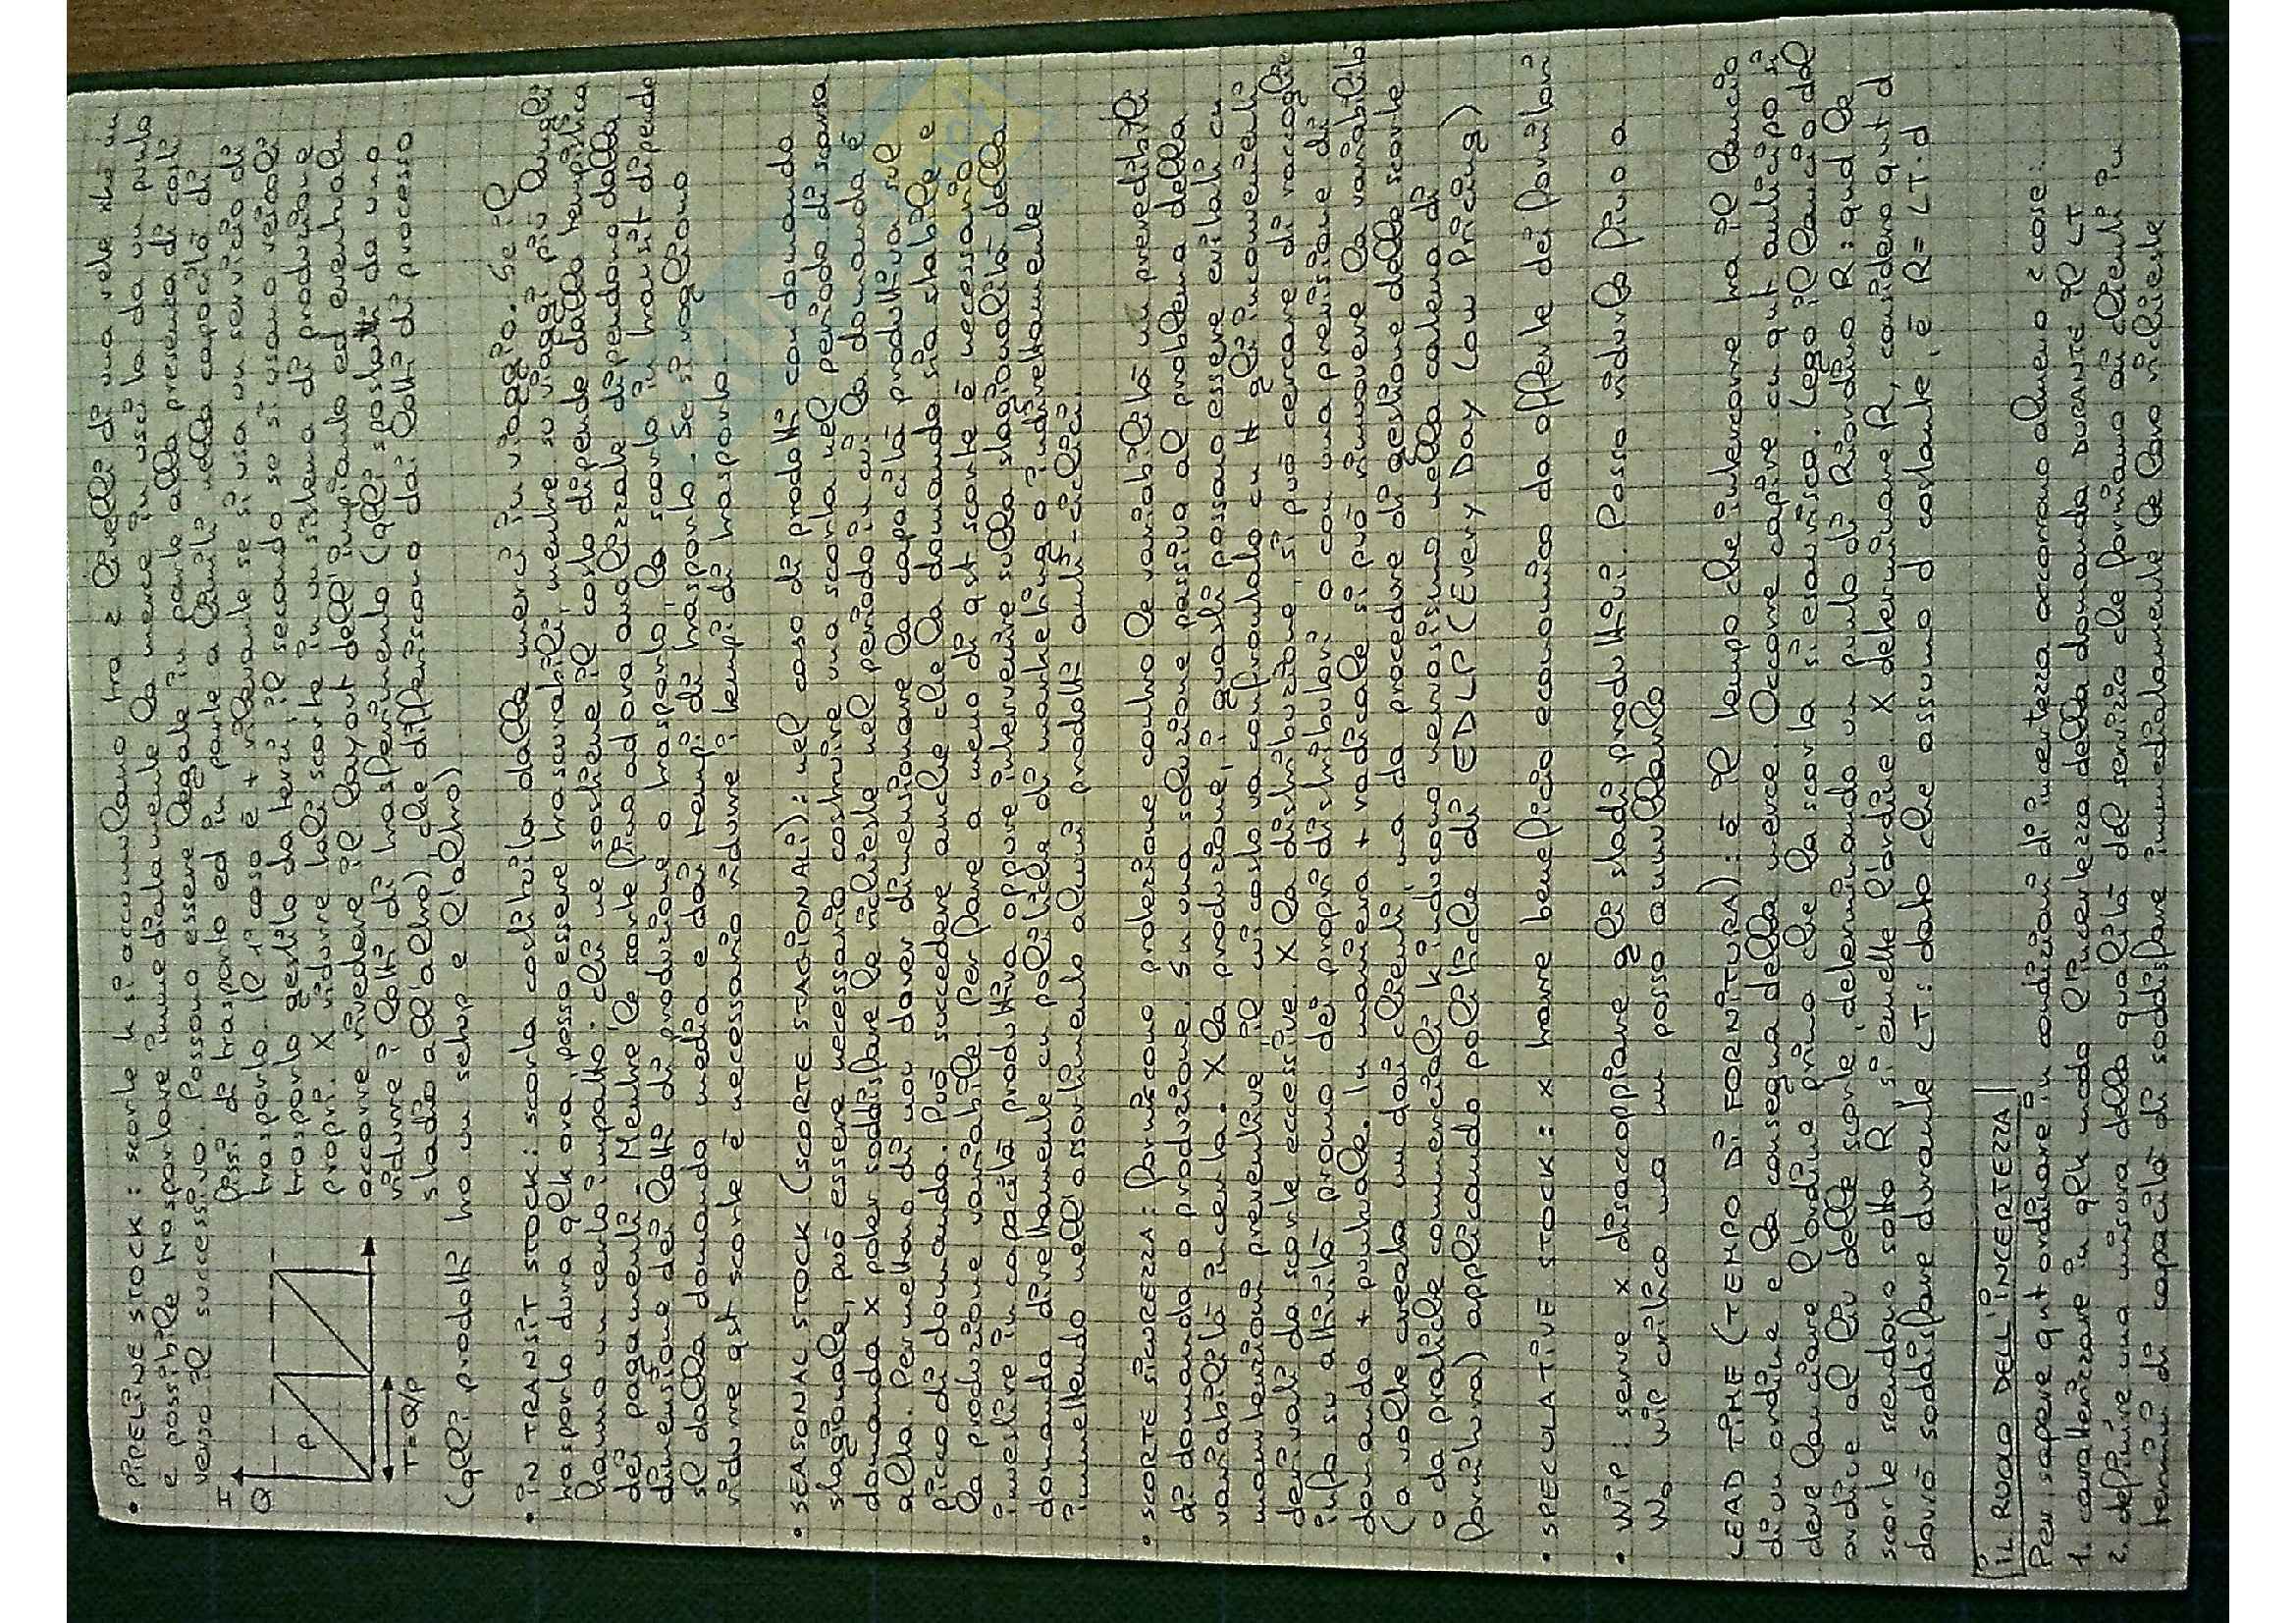 • PIPELINE STOCK: scorte k si accumulano tra 2 livelli di una rete xkè un
è possibile trasportare immediatamente la merce in uscita da un punto
verso il successivo. Possono essere legate in parte alla presenza di costi
fissi di trasporto ed in parte a limiti nella capacità di
trasporto. Il 1° caso è + rilevante se si usa un servizio di
trasporto gestito da terzi, il secondo se si usano veicoli
propri. X ridurre tali scorte in un sistema di produzione
occorre rivedere il layout dell'impianto ed eventualm
ridurre i lotti di trasferimento (qlli spostati da uno
stadio all'altro) che differiscono dai lotti di processo
(qlli prodotti tra un setup e l'altro)
I
Q
P
T=Q/P
• IN TRANSIT STOCK: scorta costituita dalle merci in viaggio. Se il
trasporto dura qlk ora, posso essere trascurabili, mentre su viaggi più lunghi
hanno un certo impatto: chi ne sostiene il costo dipende dalla tempistica
dei pagamenti. Mentre le scorte fino ad ora analizzate dipendono dalla
dimensione dei lotti di produzione o trasporto, la scorta in transit dipende
sl dalla domanda media e dai tempi di trasporto. Se si vogliono
ridurre qst scorte è necessario ridurre i tempi di trasporto.
• SEASONAL STOCK (SCORTE STAGIONALI): nel caso di prodotti con domanda
stagionale, può essere necessario costruire una scorta nel periodo di scarsa
domanda x poter soddisfare le richieste nel periodo in cui la domanda è
alta. Permettono di non dover dimensionare la capacità produttiva sul
picco di domanda. Può succedere anche che la domanda sia stabile e
la produzione variabile. Per fare a meno di qst scorte è necessario
investire in capacità produttiva oppure intervenire sulla stagionalità della
domanda direttamente cn politiche di marketing o indirettamente
immettendo nell'assortimento alcuni prodotti anti-ciclici.
• SCORTE SICUREZZA: forniscono protezione contro la variabilità un prevedibile
di domanda o produzione. Sn una soluzione passiva al problema della
variabilità incerta. X la produzione, i guasti possono essere evitati cn
manutenzioni preventive il cui costo va confrontato cn tt gli inconvenienti
derivati da scorte eccessive. X la distribuzione, si può cercare di raccoglie
info su attività promo dei propri distributori o con una previsione di
domanda + puntuale. In maniera + radicale si può rimuovere la variabilità
(a volte creata un dai clienti, ma da procedure di gestione delle scorte
o da pratiche commerciali k inducono nervosismo nella catena di
fornitura) applicando politiche di EDLP (Every Day Low Pricing)
• SPECULATIVE STOCK: x trarre beneficio economico da offerte dei fornitori
• WIP: serve x disaccoppiare gli stadi produttivi. Posso ridurlo fino a
W₀ wip critico ma un posso annullarlo
LEAD TIME (TEMPO DI FORNITURA): è il tempo che intercorre tra il lancio
di un ordine e la consegna della merce. Occorre capire cn qnt anticipo si
deve lanciare l'ordine prima che la scorta si esaurisca. Lego il lancio del
ordine al liv delle scorte, determinando un punto di Riordino R: qnd le
scorte scendono sotto R si emette l'ordine. X determinare R, considero qnt d
dovrò soddisfare durante LT: dato che assumo d costante, è R= LT·d
IL RUOLO DELL'INCERTEZZA
Per sapere qnt ordinare in condizioni di incertezza occorrono almeno 2 cose:
1. caratterizzare in qlk modo l'incertezza della domanda DURANTE IL LT
2. definire una misura della qualità del servizio che forniamo ai clienti in
termini di capacità di soddisfare immediatamente le loro richieste